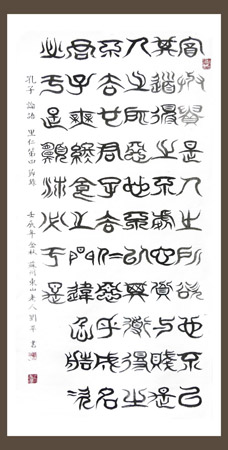 富與貴是人之所欲也不以
其道得之不處也貧與賤是
人之所惡也不以其道得之
不去也君子去仁惡乎成名
君子無終食之間違仁造次
必於是顛沛必於是
孔子 論語 里仁第四 節錄 壬辰年金秋 蘇州東山老人劉 書